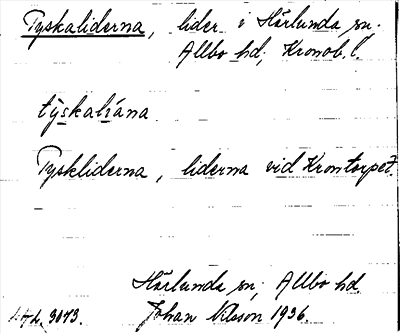 Tyskaliderna, lider i Härlunda sn.
Allbo hd, Kronob. l.
týskaliána
Tyskliderna, liderna vid Krontorpet.
Härlunda sn, Allbo hd
3073. Johan Nilsson 1936.